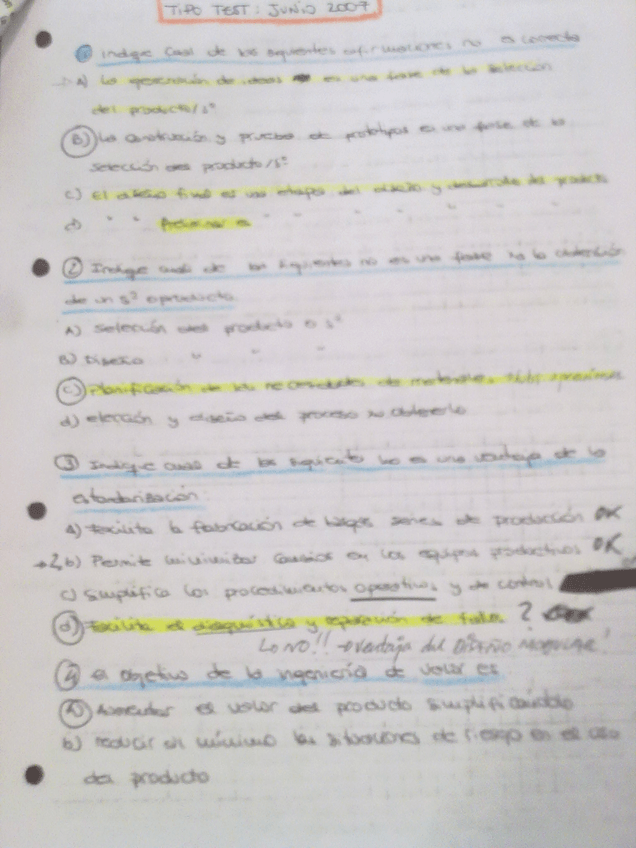 TIPO TEST: JUNIO 2007
① Indique cual de las siguientes afirmaciones no es correcta
A) La generación de ideas es una fase de la selección
del producto/sº
B) La construcción y pruebas de prototipos es una fase de la
selección del producto/sº
c) El diseño final es una etapa del diseño y desarrollo del producto
d) " " Preliminar es " " " " " "
② Indique cual de las siguientes no es una fase
de un sº o producto
A) Selección del producto o sº
B) Diseño " " "
c) Planificación de las necesidades de materiales
d) elección y diseño del proceso
③ Indique cual de las siguientes no es una ventaja de la
estandarización:
A) Facilita la fabricación de largas series de producción OK
b) Permite minimizar cambios en los equipos productivos OK
c) Simplifica los procedimientos operativos y de control
d) Facilita el diagnóstico y reparación de fallos ?
LO NO!! → ventaja del DISEÑO MODULAR!
④ El objetivo de la ingeniería de valor es
A) Aumentar el valor del producto simplificándolo
b) reducir al mínimo las situaciones de riesgo en el uso
del producto